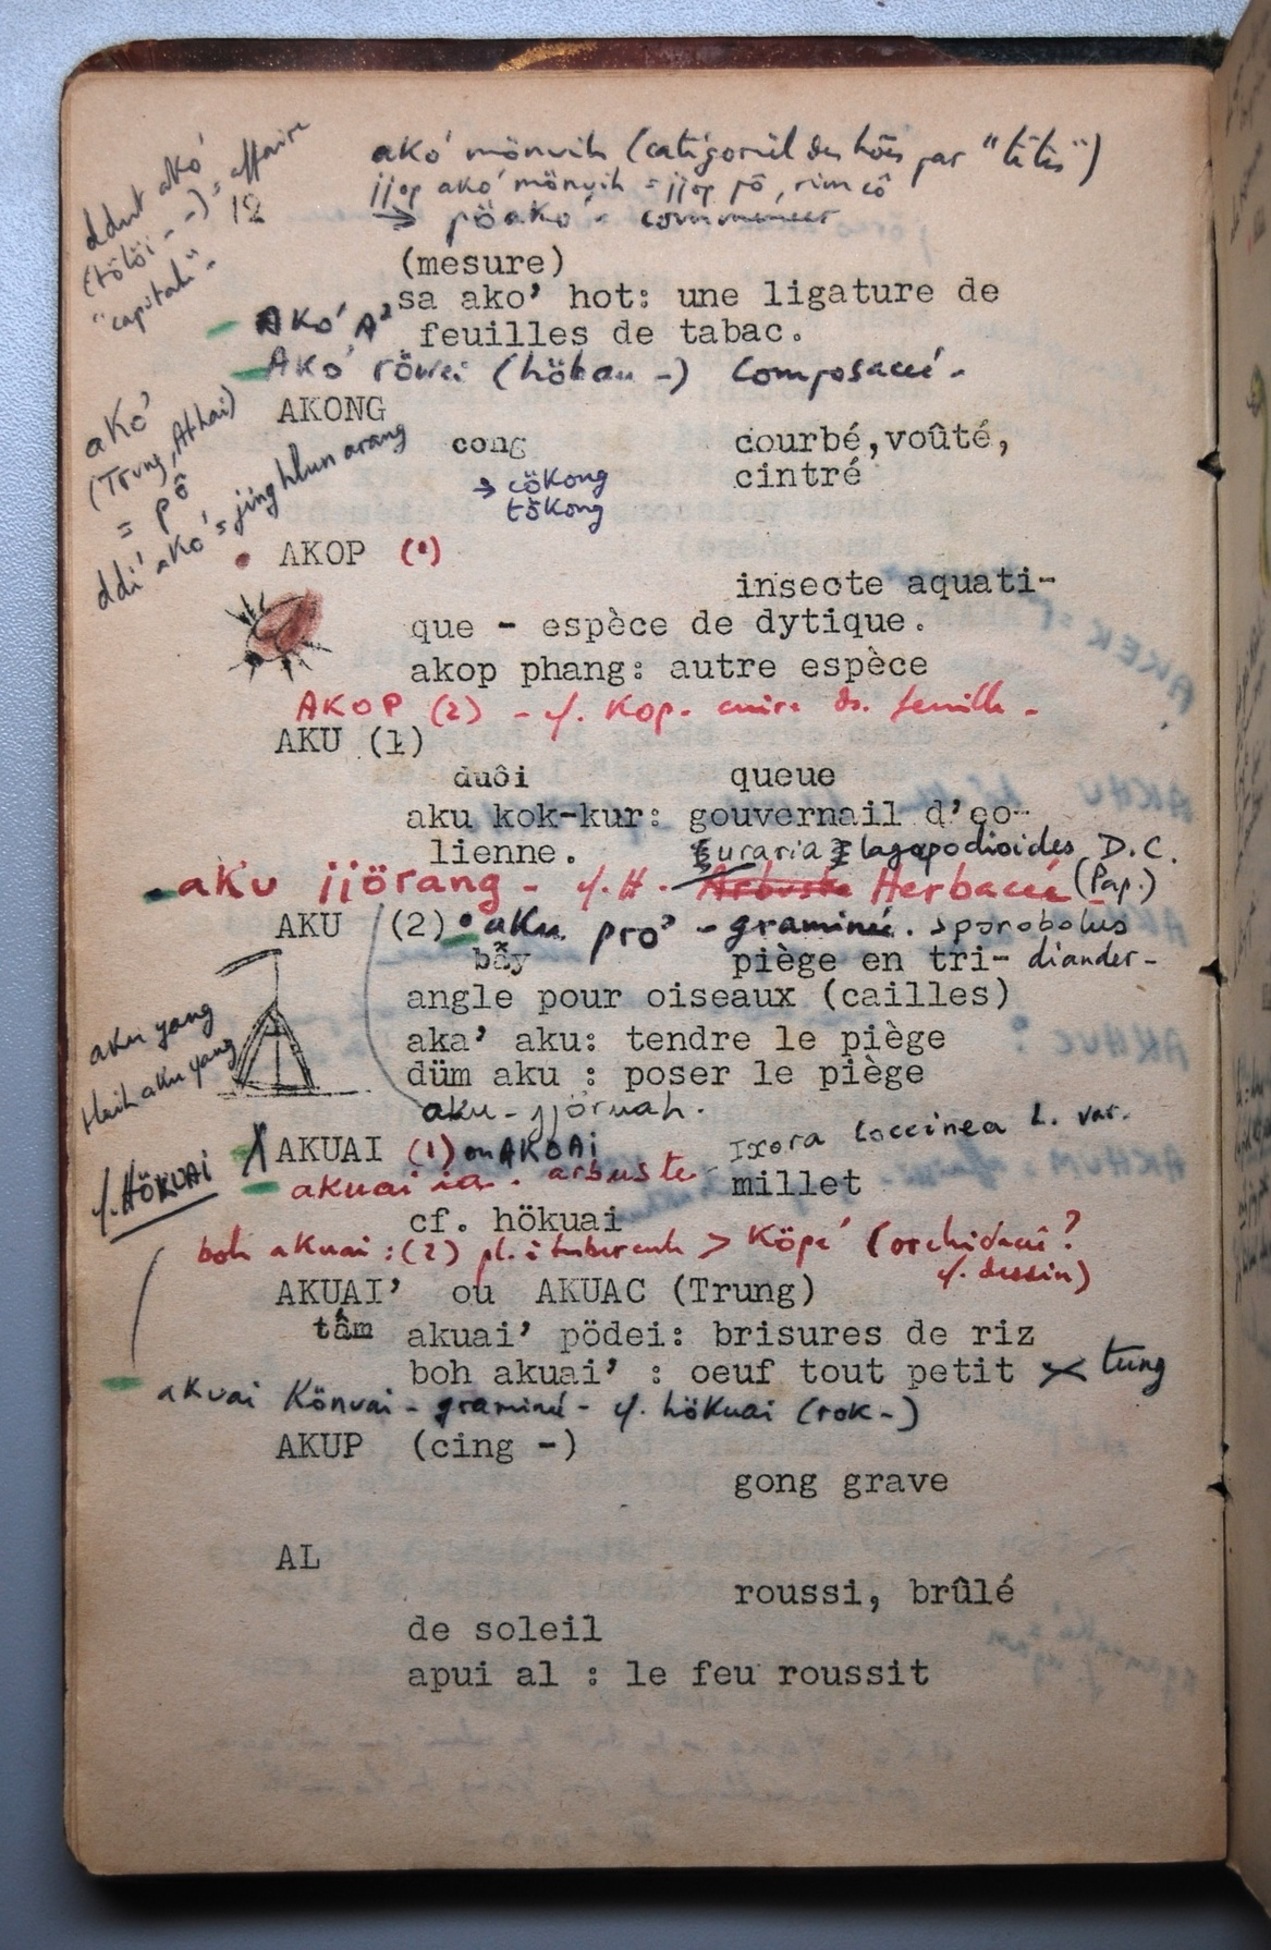 akó mönvih (catégoriel des hóes par "têtes")
jjop akó mönvih = jjop pô, rim cô
→ pöakó - commencer
ddut akó
(tölöi - -) = affaire
12
"capitale" -
(mesure)
sa ako’ hot: une ligature de
AKó A²
feuilles de tabac.
AKó röwei (höbau -) Composacée -
AKONG
akó’
(Trung, Athai)
= pô
ddi’ akó = jing hlun arang
cong courbé, voûté,
cintré
→ cökong
tökong
AKOP (1)
insecte aquati-
que - espèce de dytique.
akop phang: autre espèce
AKOP (2) - cf. Kop. cuire ds. feuille -
AKU (1)
duôi queue
aku kok-kur: gouvernail d’eo-
lienne.
uraria lagopodioides D.C.
(Pap.)
- aku jjörang - cf. H. Arbuste Herbacée
AKU (2) • aku pro’ - graminée. sporobolus
diander -
bẫy piège en tri-
angle pour oiseaux (cailles)
aka’ aku: tendre le piège
düm aku : poser le piège
aku - jjöruah.
aku yang
aku yang
AKUAI (1) ou AKOAI Ixora coccinea L. var.
cf. HÖKUAI
akuai ia. arbuste
millet
cf. hökuai
boh akuai : (2) pl. à tubercule > Köpé (orchidacée ?
cf. dessin)
AKUAI’ ou AKUAC (Trung)
tấm akuai’ pödei: brisures de riz
boh akuai’ : oeuf tout petit × tung
akuai Könvai - graminée - cf. hökuai (rok -)
AKUP (cing -)
gong grave
AL
roussi, brûlé
de soleil
apui al : le feu roussit